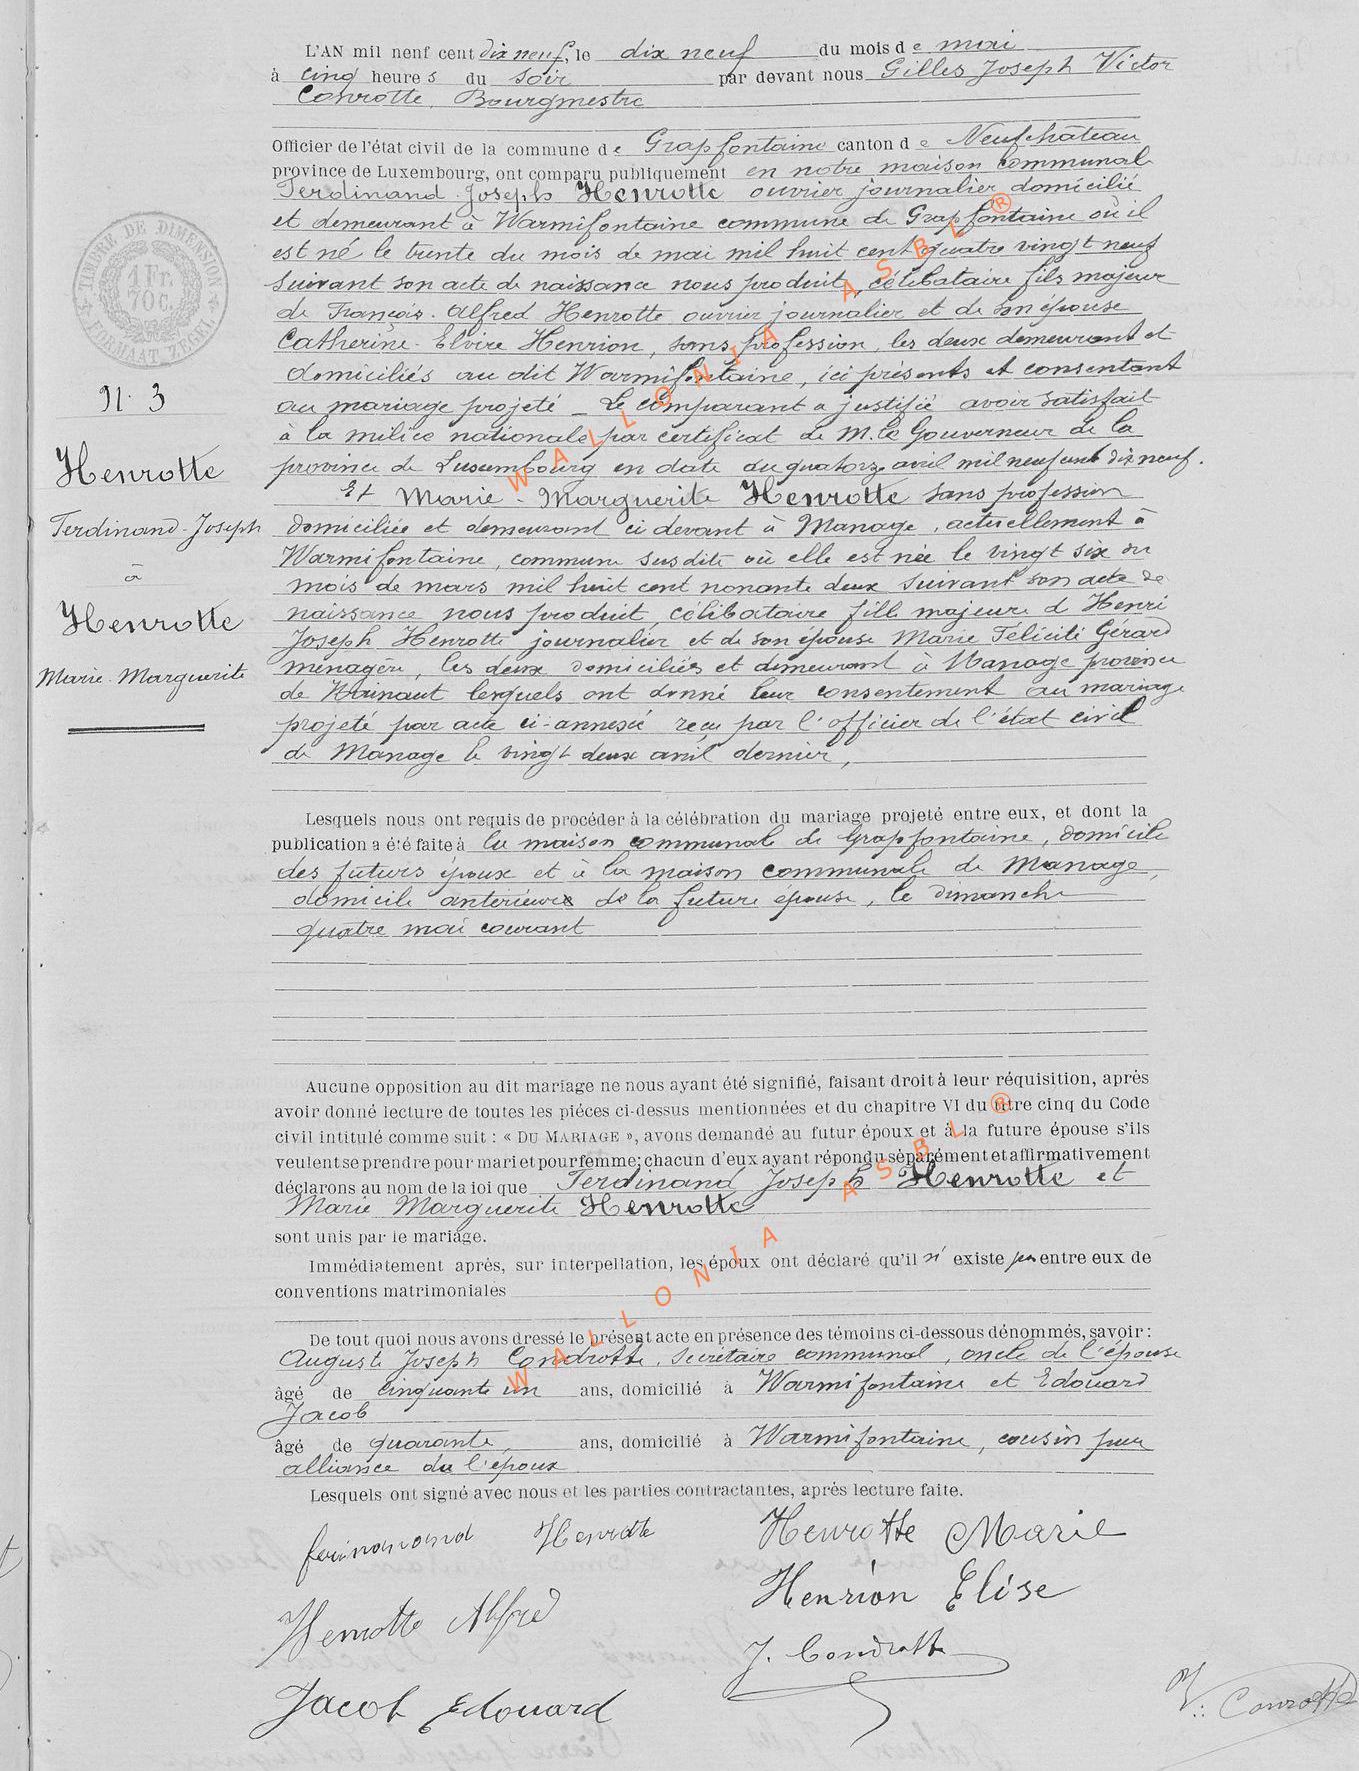 L'AN mil neuf cent dix neuf, le dix neuf du mois de mai
à cinq heures du soir par devant nous Gilles Joseph Victor
Conrotte, Bourgmestre
Officier de l'état civil de la commune de Grapfontaine canton de Neufchâteau
province de Luxembourg, ont comparu publiquement en notre maison communale
Ferdinand Joseph Henrotte ouvrier journalier domicilié
et demeurant à Warmifontaine commune de Grapfontaine où il
est né le trente du mois de mai mil huit cent quatre vingt neuf
suivant son acte de naissance nous produit, célibataire fils majeur
de François-Alfred Henrotte ouvrier journalier et de son épouse
Catherine-Elvire Henrion, sans profession, les deux demeurant et
domiciliés au dit Warmifontaine, ici présents et consentant
au mariage projeté _ Le comparant a justifié avoir satisfait
à la milice nationale par certificat de M. le Gouverneur de la
province de Luxembourg en date du quatorze avril mil neuf cent dix neuf.
Et Marie-Marguerite Henrotte sans profession
domiciliée et demeurant ci devant à Manage, actuellement à
Warmifontaine, commune susdite où elle est née le vingt six du
mois de mars mil huit cent nonante deux suivant son acte de
naissance nous produit, célibataire fille majeure d'Henri
Joseph Henrotte journalier et de son épouse Marie Félicité Gérard
ménagère, les deux domiciliés et demeurant à Manage province
de Hainaut lesquels ont donné leur consentement au mariage
projeté par acte ci-annexé reçu par l'officier de l'état civil
de Manage le vingt deux avril dernier,
Lesquels nous ont requis de procéder à la célébration du mariage projeté entre eux, et dont la
publication a été faite à la maison communale de Grapfontaine, domicile
des futurs époux et à la maison communale de Manage,
domicile antérieur de la future épouse, le dimanche
quatre mai courant
Aucune opposition au dit mariage ne nous ayant été signifié, faisant droit à leur réquisition, après
avoir donné lecture de toutes les pièces ci-dessus mentionnées et du chapitre VI du titre cinq du Code
civil intitulé comme suit : « DU MARIAGE », avons demandé au futur époux et à la future épouse s'ils
veulent se prendre pour mari et pour femme; chacun d'eux ayant répondu séparément et affirmativement
déclarons au nom de la loi que Ferdinand Joseph Henrotte et
Marie Marguerite Henrotte
sont unis par le mariage.
Immédiatement après, sur interpellation, les époux ont déclaré qu'il n'existe pas entre eux de
conventions matrimoniales
De tout quoi nous avons dressé le présent acte en présence des témoins ci-dessous dénommés, savoir :
Auguste Joseph Condrotte, secrétaire communal, oncle de l'épouse
âgé de cinquante un ans, domicilié à Warmifontaine et Edouard
Jacob
âgé de quarante ans, domicilié à Warmifontaine, cousin par
alliance de l'époux
Lesquels ont signé avec nous et les parties contractantes, après lecture faite.
Henrotte
Henrotte Marie
Henrion Elise
Henrotte Alfred
J. Condrotte
Jacob Edouard
V. Conrotte
TIMBRE DE DIMENSION
1 Fr.
70 C.
FORMAAT ZEGEL
N. 3
Henrotte
Ferdinand-Joseph
à
Henrotte
Marie-Marguerite
WALLONIA ASBL ®
WALLONIA ASBL ®